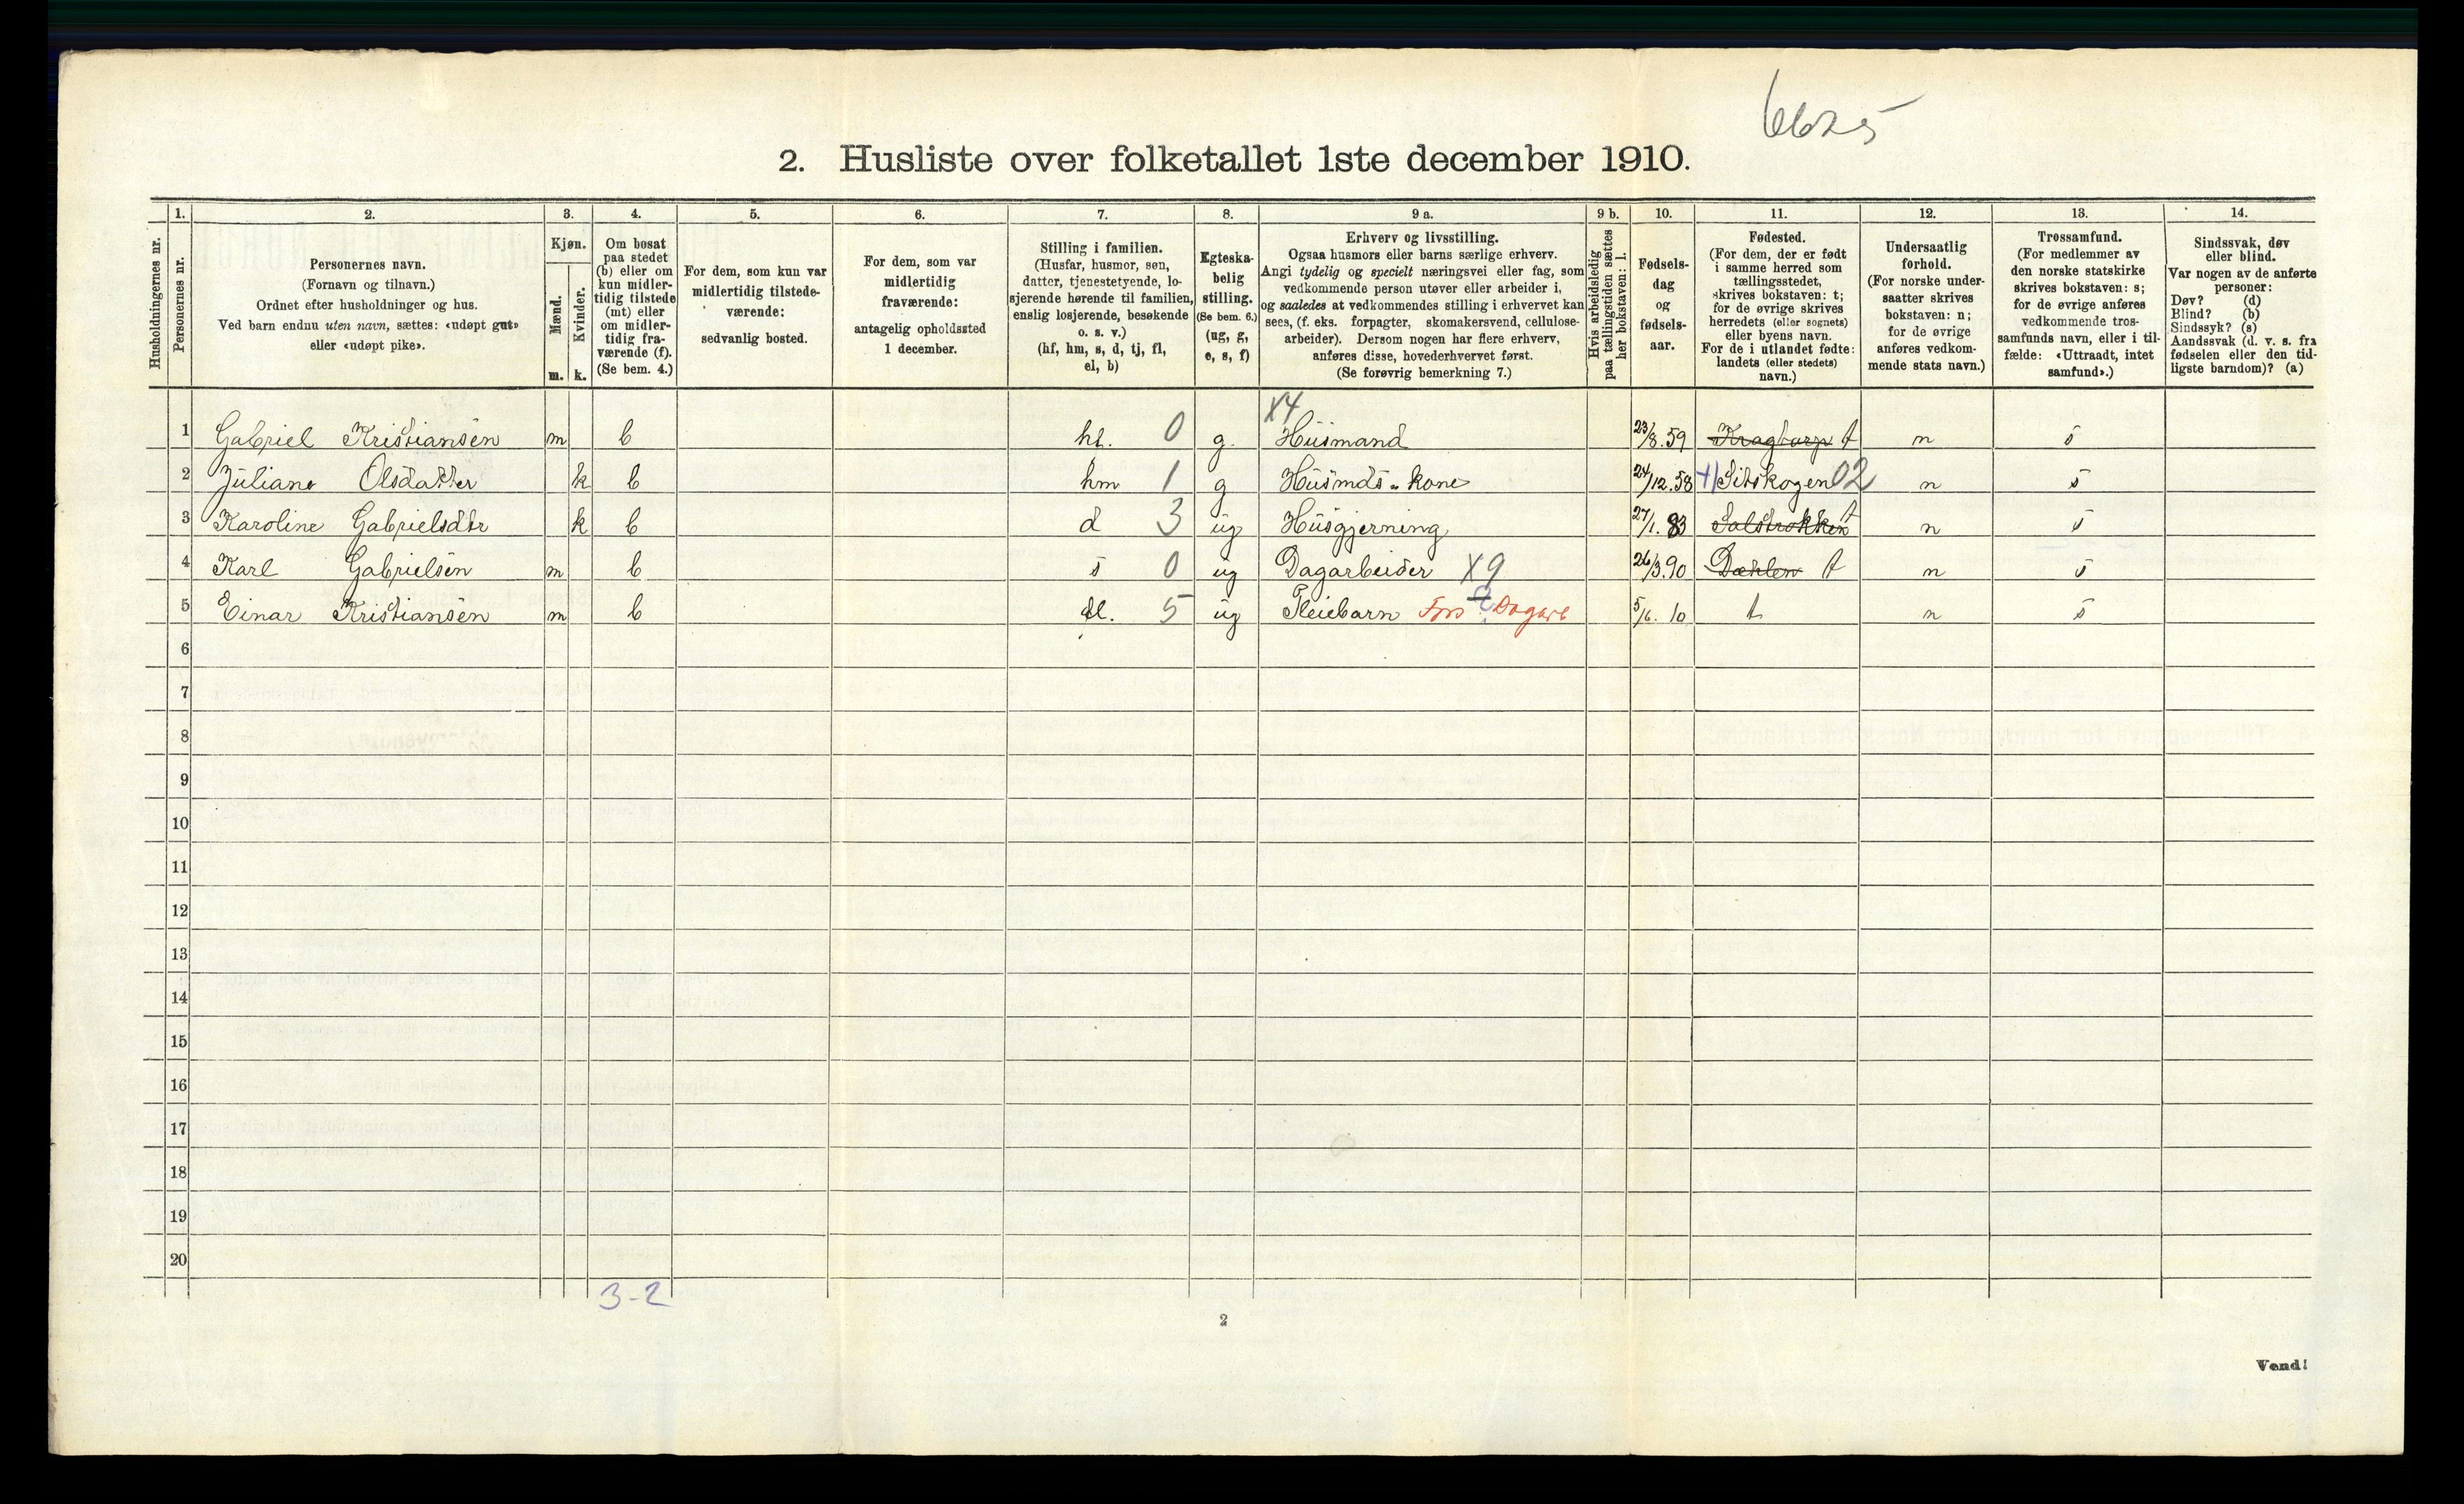 6625
2. Husliste over folketallet 1ste december 1910.
Husholdningernes nr.
1.
Personernes nr.
2.
Personernes navn.
(Fornavn og tilnavn.)
Ordnet efter husholdninger og hus.
Ved barn endnu uten navn, sættes: «udøpt gut»
eller «udøpt pike».
3.
Kjøn.
Mænd.
Kvinder.
m. k.
4.
Om bosat
paa stedet
(b) eller om
kun midler-
tidig tilstede
(mt) eller
om midler-
tidig fra-
værende (f).
(Se bem. 4.)
5.
For dem, som kun var
midlertidig tilstede-
værende:
sedvanlig bosted.
6.
For dem, som var
midlertidig
fraværende:
antagelig opholdssted
1 december.
7.
Stilling i familien.
(Husfar, husmor, søn,
datter, tjenestetyende, lo-
sjerende hørende til familien,
enslig losjerende, besøkende
o. s. v.)
(hf, hm, s, d, tj, fl,
el, b)
8.
Egteska-
belig
stilling.
(Se bem. 6.)
(ug, g,
e, s, f)
9 a.
Erhverv og livsstilling.
Ogsaa husmors eller barns særlige erhverv.
Angi tydelig og specielt næringsvei eller fag, som
vedkommende person utøver eller arbeider i,
og saaledes at vedkommendes stilling i erhvervet kan
sees, (f. eks. forpagter, skomakersvend, cellulose-
arbeider). Dersom nogen har flere erhverv,
anføres disse, hovederhvervet først.
(Se forøvrig bemerkning 7.)
9 b.
Hvis arbeidsledig
paa tællingstiden sættes
her bokstaven: l.
10.
Fødsels-
dag
og
fødsels-
aar.
11.
Fødested.
(For dem, der er født
i samme herred som
tællingsstedet,
skrives bokstaven: t;
for de øvrige skrives
herredets (eller sognets)
eller byens navn.
For de i utlandet fødte:
landets (eller stedets)
navn.)
12.
Undersaatlig
forhold.
(For norske under-
saatter skrives
bokstaven: n;
for de øvrige
anføres vedkom-
mende stats navn.)
13.
Trossamfund.
(For medlemmer av
den norske statskirke
skrives bokstaven: s;
for de øvrige anføres
vedkommende tros-
samfunds navn, eller i til-
fælde: «Uttraadt, intet
samfund».)
14.
Sindssvak, døv
eller blind.
Var nogen av de anførte
personer:
Døv? (d)
Blind? (b)
Sindssyk? (s)
Aandssvak (d. v. s. fra
fødselen eller den tid-
ligste barndom)? (a)
X4
1 Gabriel Kristiansen m b hf. 0 g. Husmand 23/8.59 t n s
2 Juliane Olsdatter k b hm 1 g Husmds. kone 24/12.58 Sitskogen 02 n s
3 Karoline Gabrielsdtr k b d 3 ug Husgjerning 27/1.83 Salstrokken t n s
4 Karl Gabrielsen m b s 0 ug Dagarbeider X9 26/3.90 Dæhlen t n s
5 Einar Kristiansen m b fl. 5 ug Pleiebarn Fors Dagarb 5/6.10 t n s
6
7
8
9
10
11
12
13
14
15
16
17
18
19
20
3-2
2
Vend!